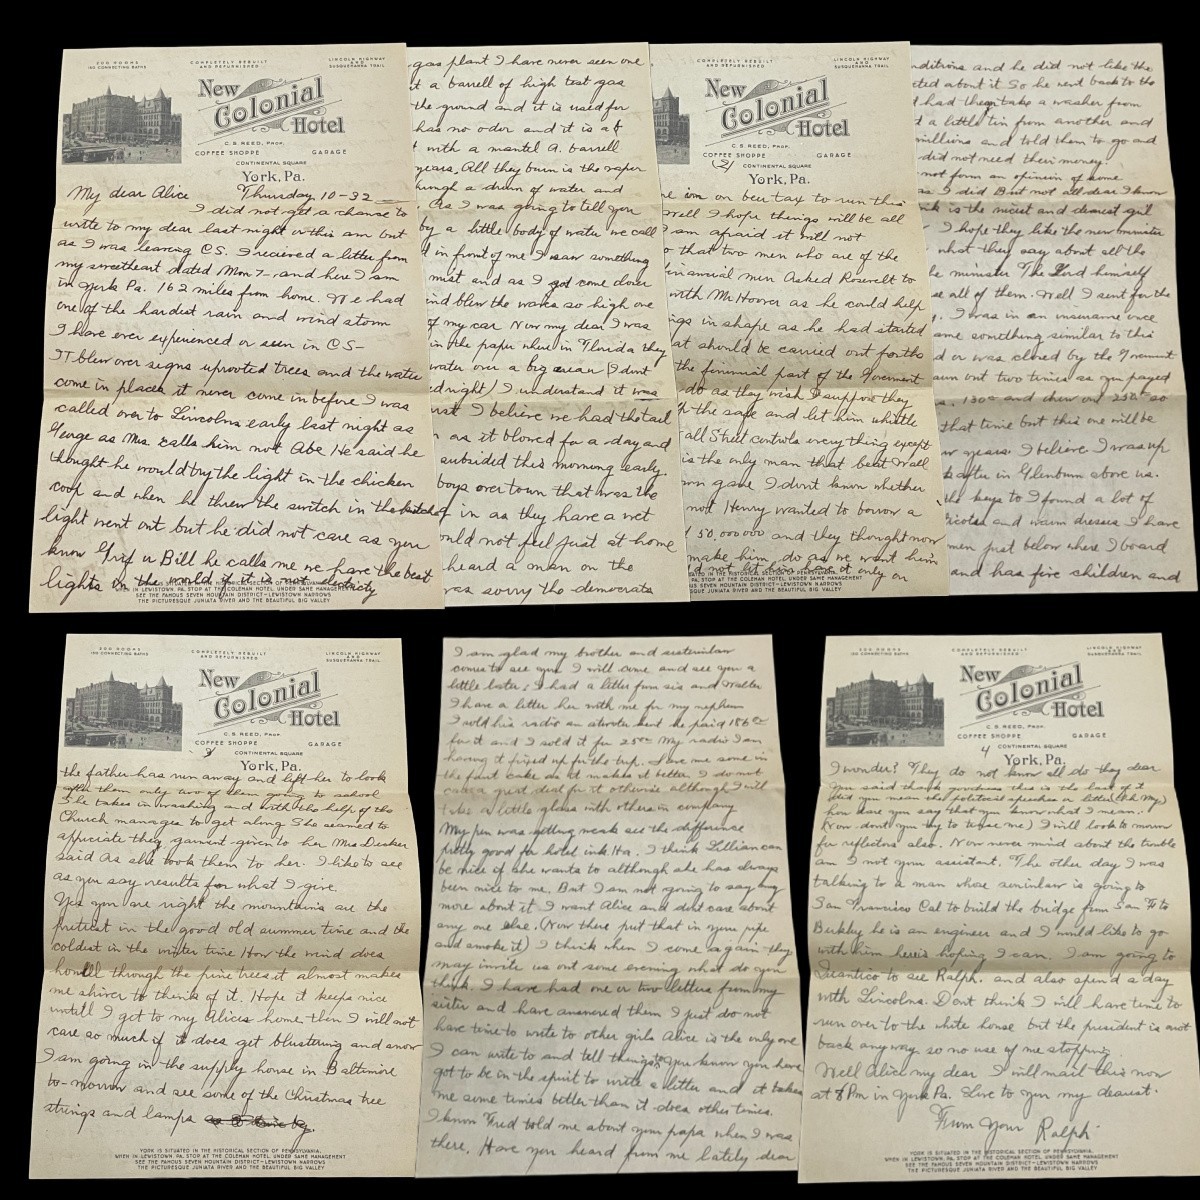 200 ROOMS
150 CONNECTING BATHS
COMPLETELY REBUILT
AND REFURNISHED
LINCOLN HIGHWAY
AND
SUSQUEHANNA TRAIL
New
Colonial
Hotel
C. S. REED, PROP.
COFFEE SHOPPE GARAGE
CONTINENTAL SQUARE
York, Pa.
My dear Alice Thursday 10-32
I did not get a chance to
write to my dear last night or this am but
as I was leaving C.S. I received a letter from
my sweetheart dated Mon 7- and here I am
in York Pa. 162 miles from home. We had
one of the hardest rain and wind storm
I have ever experienced or seen in C.S-
IT blew over signs uprooted trees and the water
come in places it never come in before I was
called over to Lincolns early last night as
George as Mrs. calls him not Abe. He said he
thought he would try the light in the chicken
coop and when he threw the switch in the
light went out but he did not care as you
know Fred or Bill he calls me we have the best
lights in the world if it is not electricity
YORK IS SITUATED IN THE HISTORICAL SECTION OF PENNSYLVANIA.
WHEN IN LEWISTOWN, PA. STOP AT THE COLEMAN HOTEL UNDER SAME MANAGEMENT
SEE THE FAMOUS SEVEN MOUNTAIN DISTRICT-LEWISTOWN NARROWS
THE PICTURESQUE JUNIATA RIVER AND THE BEAUTIFUL BIG VALLEY
gas plant I have never seen one
a barrell of high test gas
the ground and it is used for
has no odor and it is a
with a mantel A. barrell
years. All they burn is the vapor
through a drum of water and
As I was going to tell you
by a little body of water we call
in front of me I saw something
mist and as I got come closer
and blew the waves so high one
of my car Now my dear I was
in the paper where in Florida they
water over a big area (I dont
right) I understand it was
I believe we had the tail
as it blowed for a day and
subsided this morning early.
boys over town that was the
in as they have a wet
would not feel just at home
heard a man on the
was sorry the democrats
COMPLETELY REBUILT
AND REFURNISHED
LINCOLN HIGHWAY
AND
SUSQUEHANNA TRAIL
New
Colonial
Hotel
C. S. REED, PROP.
COFFEE SHOPPE GARAGE
(2) CONTINENTAL SQUARE
York, Pa.
on beer tax to run this
well I hope things will be all
I am afraid it will not
that two men who are of the
financial men Asked Rosevelt to
with Mr Hoover as he could help
things in shape as he had started
that should be carried out for the
the financial part of the Government
do as they wish I suppose they
the safe and let him whistle
Wall Street controls every thing except
is the only man that beat Wall
own game I dont know whether
not Henry wanted to borrow a
50,000000 and they thought now
make him do as we want him
not let him have it only on
SITUATED IN THE HISTORICAL SECTION OF PENNSYLVANIA.
PA. STOP AT THE COLEMAN HOTEL UNDER SAME MANAGEMENT
FAMOUS SEVEN MOUNTAIN DISTRICT-LEWISTOWN NARROWS
JUNIATA RIVER AND THE BEAUTIFUL BIG VALLEY
conditions and he did not like the
about it So he went back to the
had them take a washer from
a little tin from another and
millions and told them to go and
did not need their money.
not form an opinion of some
as I did But not all dear I know
is the nicest and dearest girl
I hope they like the new minister
what they say about all the
minister The Lord himself
all of them. Well I sent for the
I was in an insurance once
same something similar to this
or was closed by the Government
out two times as you payed
130 00 and drew out 250 00 so
that time but this one will be
years. I believe I was up
after in Glenburn above us.
the keys to I found a lot of
and warm dresses I have
men just below where I board
and has five children and
200 ROOMS
150 CONNECTING BATHS
COMPLETELY REBUILT
AND REFURNISHED
LINCOLN HIGHWAY
AND
SUSQUEHANNA TRAIL
New
Colonial
Hotel
C. S. REED, PROP.
COFFEE SHOPPE GARAGE
3 CONTINENTAL SQUARE
York, Pa.
the father has run away and left her to look
after them only two of them going to school
She takes in washing and with the help of the
Church manages to get along She seemed to
appriciate the garment given to her Mrs Disher
said As she took them to her. I like to see
as you say results for what I give.
Yes you are right the mountains are the
pretiest in the good old summer time and the
coldest in the winter time How the wind does
howell through the pine trees it almost makes
me shiver to think of it. Hope it keeps nice
untill I get to my Alices home then I will not
care so much if it does get blustering and snow
I am going in the supply house in Baltimore
to-morrow and see some of the Christmas tree
strings and lamps
YORK IS SITUATED IN THE HISTORICAL SECTION OF PENNSYLVANIA.
WHEN IN LEWISTOWN, PA. STOP AT THE COLEMAN HOTEL UNDER SAME MANAGEMENT
SEE THE FAMOUS SEVEN MOUNTAIN DISTRICT-LEWISTOWN NARROWS
THE PICTURESQUE JUNIATA RIVER AND THE BEAUTIFUL BIG VALLEY
I am glad my brother and sisterinlaw
comes to see you. I will come and see you a
little later; I had a letter from sis and Walter
I have a letter her with me for my nephew
I sold his radio an atwater kent he paid 186 00
for it and I sold it for 25 00 My radio I am
having it fixed up for the trip. Save me some in
the fruit cake as it makes it better. I do not
care a great deal for it otherwise although I will
take a little glass with others in company
My pen was getting weak see the difference
pretty good for hotel ink Ha. I think Lillian can
be nice if she wants to although she has always
been nice to me. But I am not going to say any
more about it I want Alice and dont care about
any one else. (Now there put that in your pipe
and smoke it) I think when I come again they
may invite us out some evening what do you
think. I have had one or two letters from my
sister and have answered them I just do not
have time to write to other girls Alice is the only one
I can write to and tell things to. You know you have
got to be in the spirit to write a letter and it takes
me some times better than it does other times.
I know Fred told me about your papa when I was
there. Have you heard from me lately dear
200 ROOMS
150 CONNECTING BATHS
COMPLETELY REBUILT
AND REFURNISHED
LINCOLN HIGHWAY
AND
SUSQUEHANNA TRAIL
New
Colonial
Hotel
C. S. REED, PROP.
COFFEE SHOPPE GARAGE
4 CONTINENTAL SQUARE
York, Pa.
I wonder? They do not know all do they dear
You said thank goodness this is the last of it
did you mean the political speeches or letter (Oh My)
how dare you say that you know what I mean.
(Now dont you try to tease me) I will look to morrow
for reflectors also. Now never mind about the trouble
am I not your assistant. The other day I was
talking to a man whose soninlaw is going to
San Francisco Cal to build the bridge from San F to
Berkley he is an engineer and I would like to go
with him heres hoping I can. I am going to
Quantico to see Ralph. and also spend a day
with Lincolns. Dont think I will have time to
run over to the white house but the president is not
back anyway so no use of me stopping.
Well Alice my dear I will mail this now
at 8 Pm in York Pa. Love to you my dearest.
From Your Ralph
YORK IS SITUATED IN THE HISTORICAL SECTION OF PENNSYLVANIA.
WHEN IN LEWISTOWN, PA. STOP AT THE COLEMAN HOTEL UNDER SAME MANAGEMENT
SEE THE FAMOUS SEVEN MOUNTAIN DISTRICT-LEWISTOWN NARROWS
THE PICTURESQUE JUNIATA RIVER AND THE BEAUTIFUL BIG VALLEY